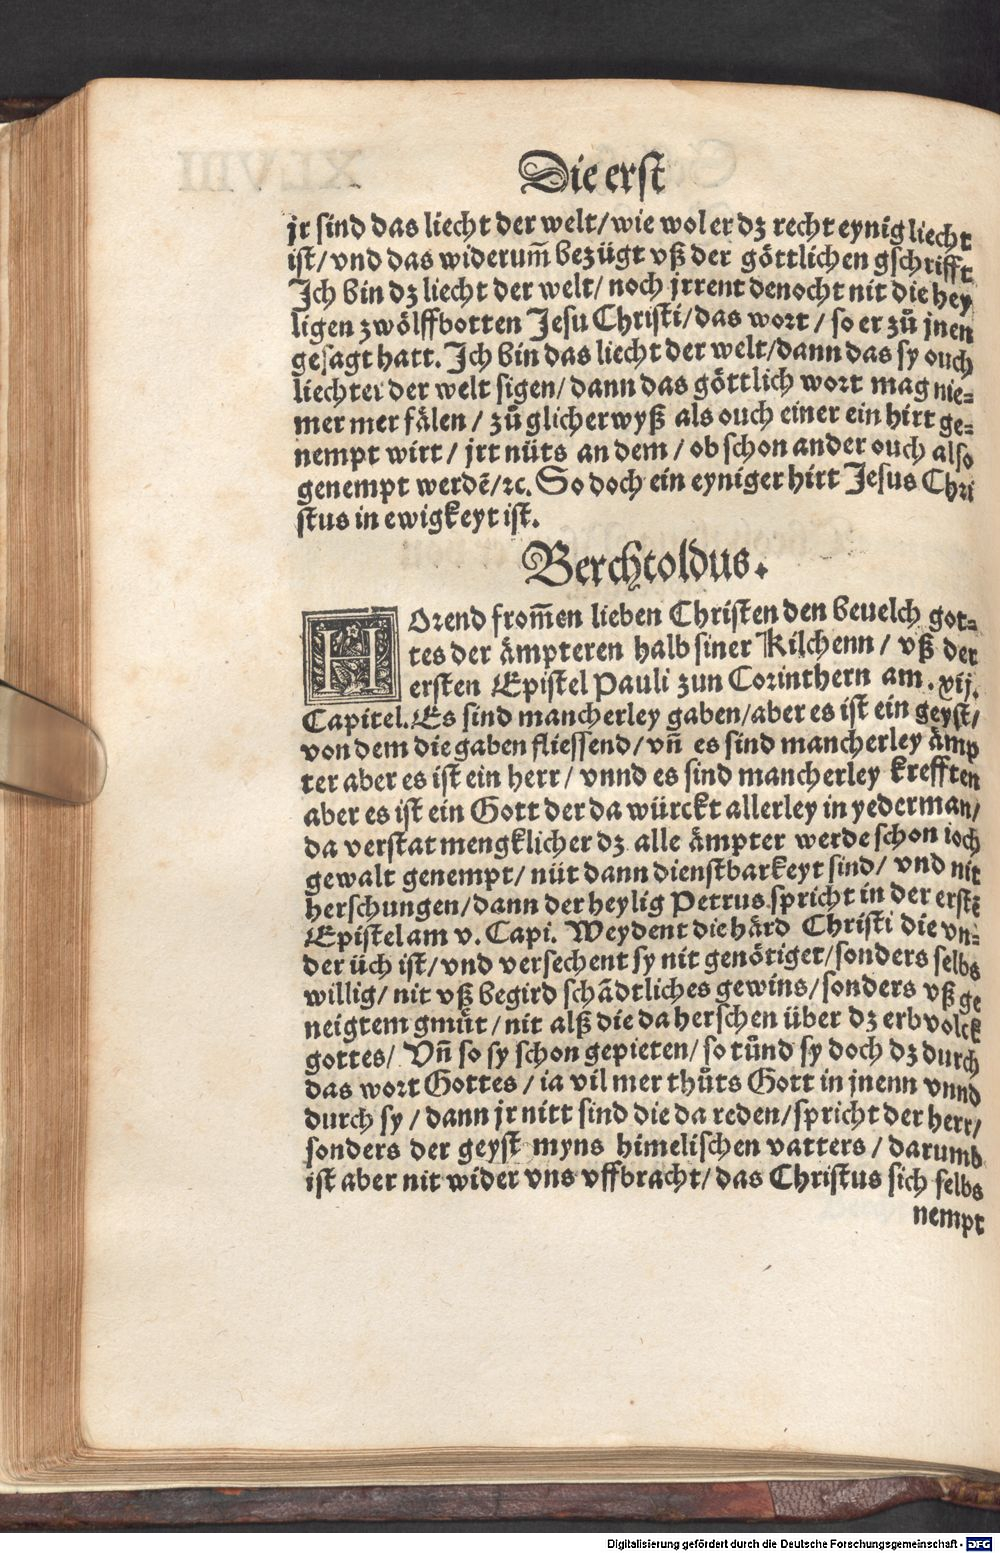 Die erst
jr sind das liecht der welt/ wie wol er dz recht eynig liecht
ist/ vnd das widerum̄ bezügt vß der göttlichen gschrifft
Ich bin dz liecht der welt/ noch jrrent denocht nit die hey
ligen zwölffbotten Jesu Christi/ das wort/ so er zů jnen
gesagt hatt. Ich bin das liecht der welt/ dann das sy ouch
liechter der welt sigen/ dann das göttlich wort mag nie-
mer mer fälen/ zů glicher wyß als ouch einer ein hirt ge-
nempt wirt/ jrt nüts an dem/ ob schon ander ouch also
genempt werdē/ ꝛc. So doch ein eyniger hirt Jesus Chri
stus in ewigkeyt ist.
Berchtoldus.
HOrend from̄en lieben Christen den beuelch got-
tes der ämpteren halb siner Kilchenn/ vß der
ersten Epistel Pauli zun Corinthern am. xij.
Capitel. Es sind mancherley gaben/ aber es ist ein geyst/
von dem die gaben fliessend/ vn̄ es sind mancherley ämp
ter aber es ist ein herr/ vnnd es sind mancherley krefften
aber es ist ein Gott der da würckt allerley in yederman/
da verstat mengklicher dz alle ämpter werde schon ioch
gewalt genempt/ nüt dann dienstbarkeyt sind/ vnd nit
herschungen/ dann der heylig Petrus spricht in der erstē
Epistel am v. Capi. Weydent die härd Christi die vn-
der üch ist/ vnd versechent sy nit genötiget/ sonders selbs
willig/ nit vß begird schādtliches gewins/ sonders vß ge
neigtem gmüt/ nit alß die da herschen über dz erbvolck
gottes/ Vn̄ so sy schon gepieten/ so tůnd sy doch dz durch
das wort Gottes/ ia vil mer thůts Gott in jnenn vnnd
durch sy/ dann jr nitt sind die da reden/ spricht der herr/
sonders der geyst myns himelischen vatters/ darumb
ist aber nit wider vns vffbracht/ das Christus sich selbs
nempt
Digitalisierung gefördert durch die Deutsche Forschungsgemeinschaft - DFG